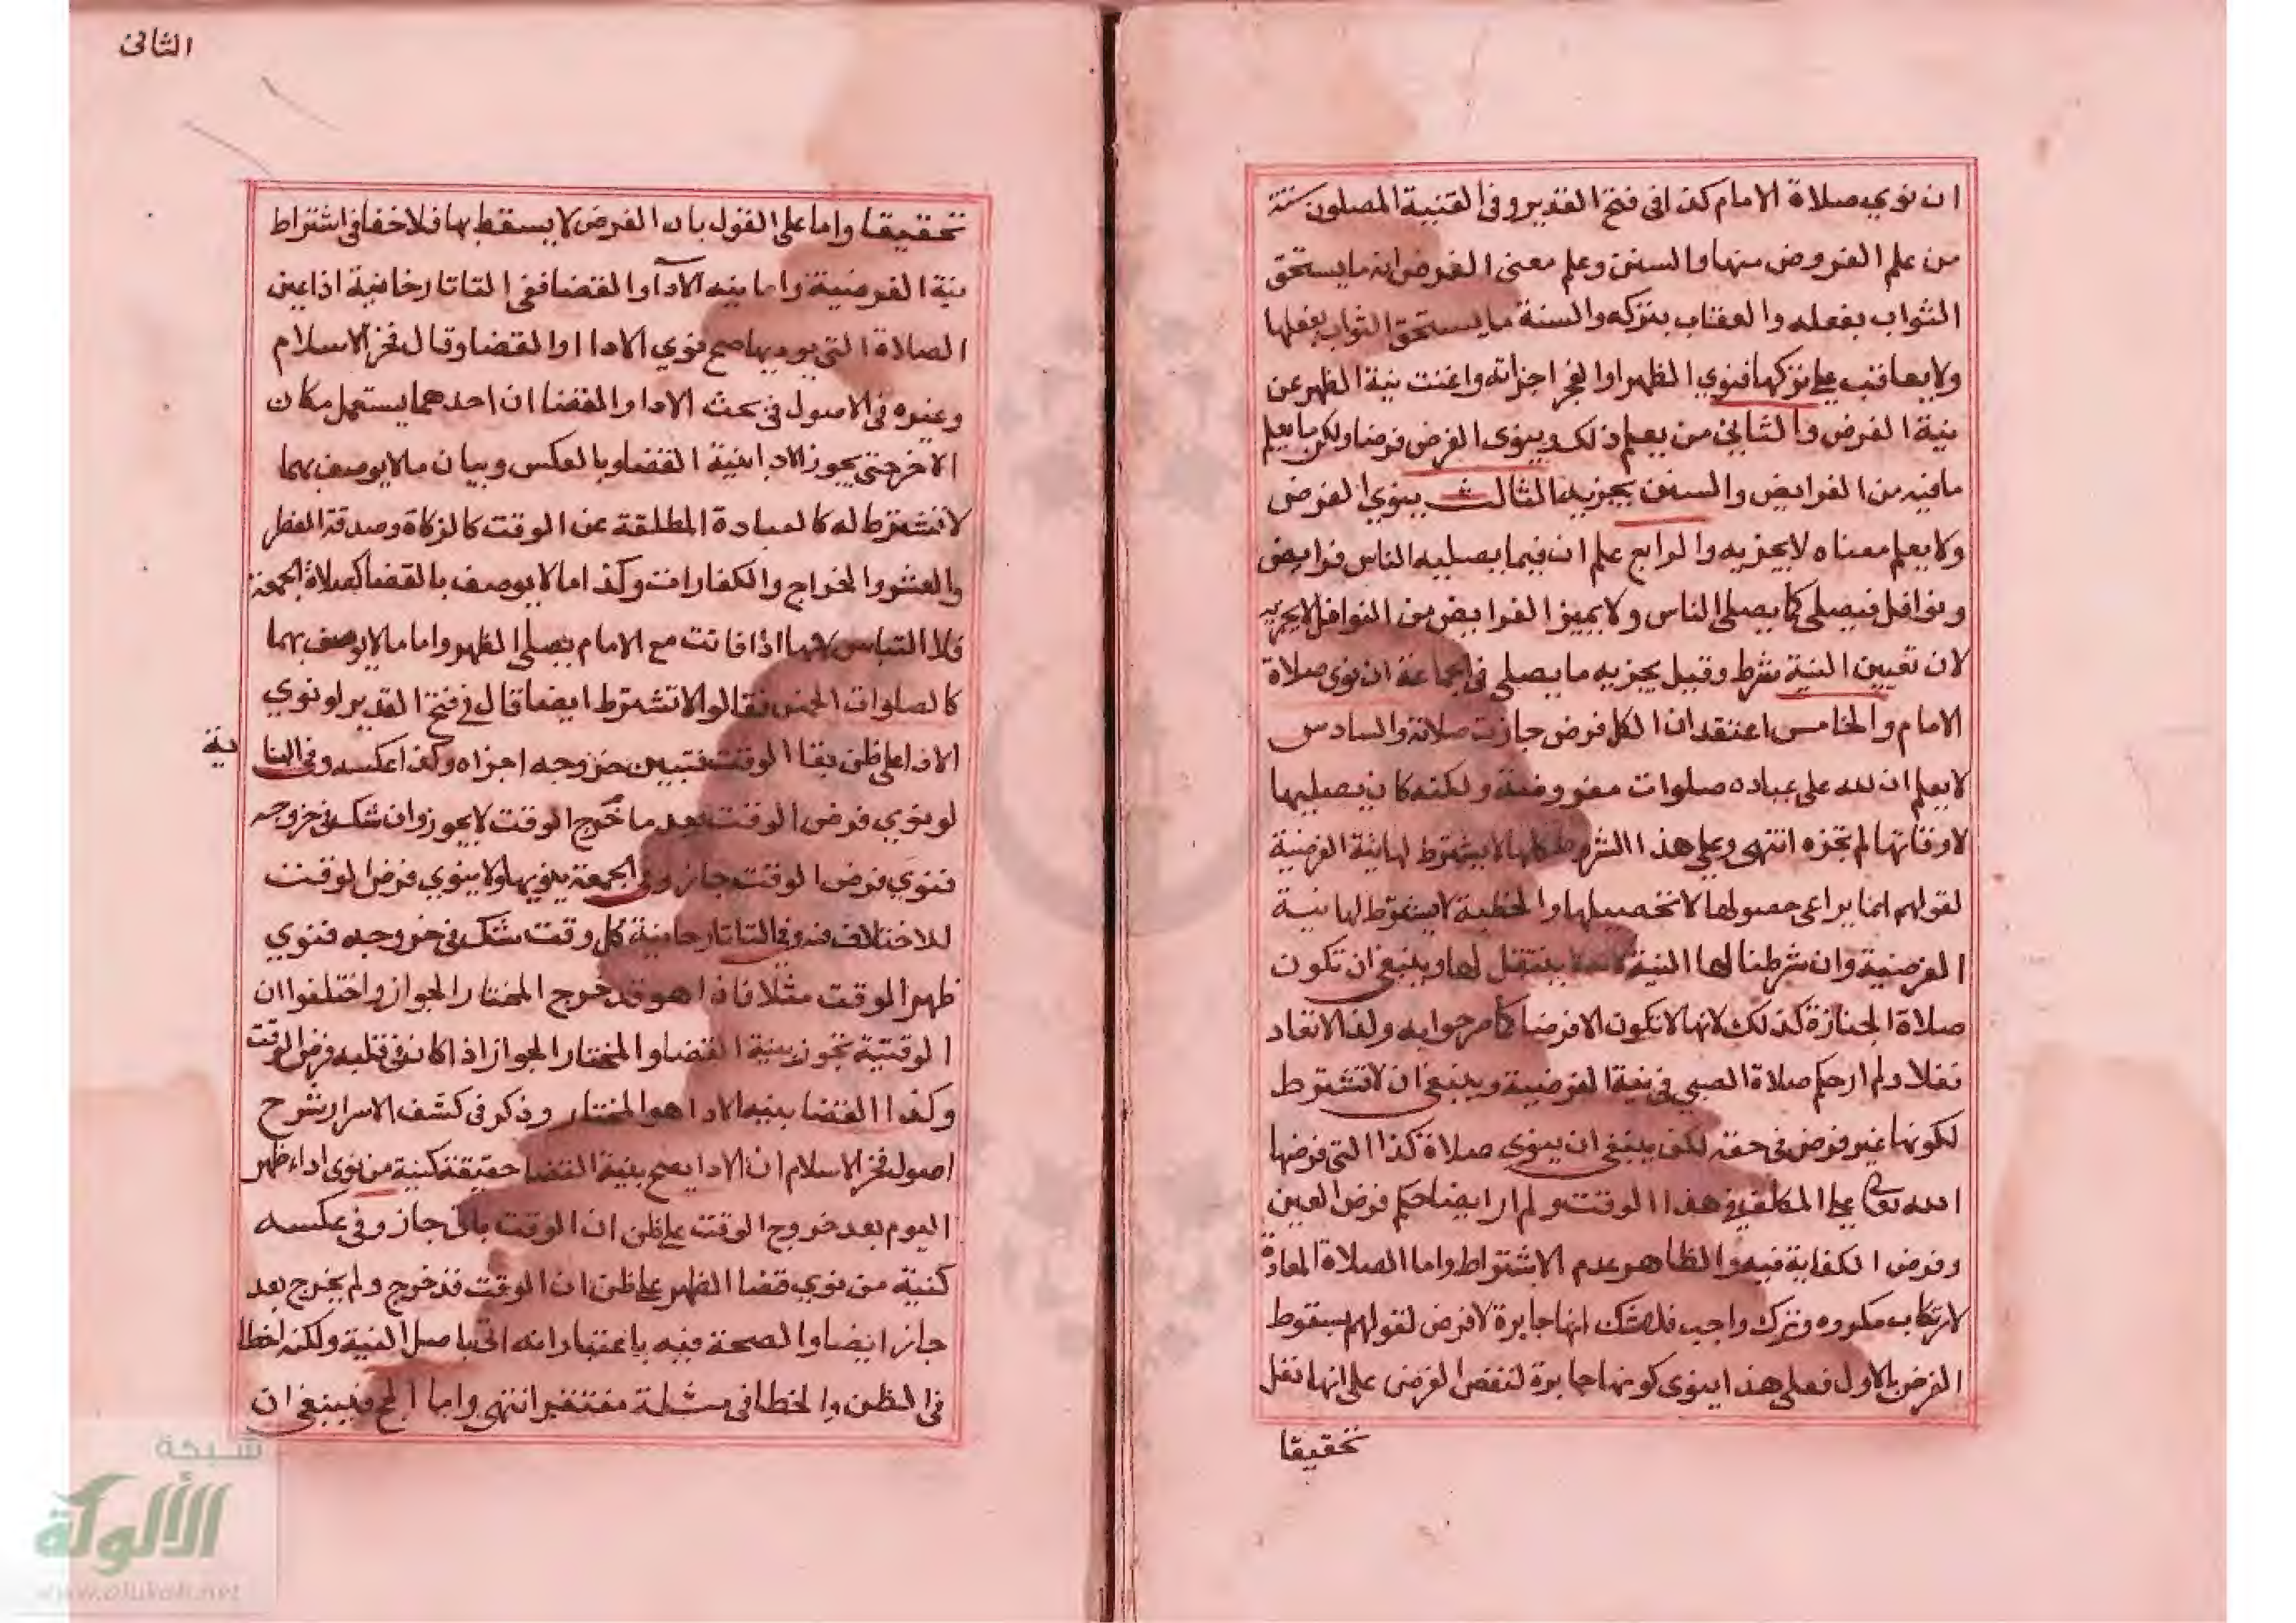 ان نوي صلاة الامام كذا في فتح القدير وفي القنية المصلون ستة
من علم الفروض منها والسنن وعلم معنى الفرض انه ما يستحق
الثواب بفعله والعقاب بتركه والسنة ما يستحق الثواب بفعلها
ولا يعاقب على تركها فنوي الظهر او الفجر اجزاته واغنت نية الظهر عن
نية الفرض والثاني من يعلم ذلك وينوى الفرض فرضا ولكن لا يعلم
ما فيه من الفرايض والسنن يجزيه الثالث ينوي الفرض
ولا يعلم معناه لا يجزيه والرابع علم ان فيما يصليه الناس فرايض
ونوافل فيصلي كما يصلي الناس ولا يميز الفرايض من النوافل لا يجزيه
لان تعيين النية شرط وقيل يجزيه ما يصلي في الجماعة ان نوى صلاة
الامام والخامس اعتقد ان الكل فرض جازت صلاته والسادس
لا يعلم ان لله على عباده صلوات مفروضة ولكنه كان يصليها
لاوقاتها لم تجزه انتهى وعلى هذا الشروط كلها لا يشترط لها نية الفرضية
لقولهم انما يراعى حصولها لا تحصيلها والخطبة لا يشترط لها نية
الفرضية وان شرطنا لها النية لانه لا يتنفل لها وينبغي ان تكون
صلاة الجنازة كذلك لانها لا تكون الا فرضا كما صرحوا به ولذا لا تعاد
نفلا ولم ار حكم صلاة الصبي في نية الفرضية وينبغي ان لا تشترط
لكونها غير فرض في حقه لكن ينبغي ان ينوى صلاة كذا التي فرضها
الله تعالى على المكلف في هذا الوقت ولم ار ايضا حكم فرض العين
وفرض الكفاية فيه والظاهر عدم الاشتراط واما الصلاة المعادة
لارتكاب مكروه وترك واجب فلا شك انها جابرة لا فرض لقولهم بسقوط
الفرض بالاول فعلى هذا ينوى كونها جابرة لنقض الفرض على انها نفل
تحقيقا
الثاني
تحقيقا واما على القول بان الفرض لا يسقط بها فلا خفا في اشتراط
نية الفرضية واما نية الآدا والقضا ففي التاتارخانية اذا عين
الصلاة التي يوديها صح نوي الادا او القضا وقال فخر الاسلام
وغيره في الاصول في بحث الادا والقضا ان احدهما يستعمل مكان
الاخر حتى يجوز الادا بنية القضا وبالعكس وبيان ما لا يوصف بهما
لا تشترط له كالعبادة المطلقة عن الوقت كالزكاة وصدقة الفطر
والعشر والخراج والكفارات وكذا ما لا يوصف بالقضا كصلاة الجمعة
فلا التباس لانها اذا فاتت مع الامام يصلي الظهر واما ما لا يوصف بهما
كالصلوات الخمس فقالوا لا تشترط ايضا قال في فتح القدير لو نوي
الادا على ظن بقا الوقت فتبين خروجه اجزاه وكذا عكسه وفي البنا
ية
لو نوي فرض الوقت بعد ما خرج الوقت لا يجوز وان شك في خروجه
فنوي فرض الوقت جاز وفي الجمعة ينويها ولا ينوي فرض الوقت
للاختلاف فيه وفي التاتارخانية كل وقت شك في خروجه فنوي
ظهر الوقت مثلا فاذا هو قد خرج المختار الجواز واختلفوا ان
الوقتية تجوز بنية القضا والمختار الجواز اذا كان في قلبه فرض الوقت
وكذا القضا بنية الادا هو المختار وذكر في كشف الاسرار شرح
اصول فخر الاسلام ان الادا يصح بنية القضا حقيقة كنية من نوى اداء ظهر
اليوم بعد خروج الوقت على ظن ان الوقت باق جاز وفي عكسه
كنية من نوي قضا الظهر على ظن ان الوقت قد خرج ولم يخرج بعد
جاز ايضا والصحة فيه باعتبار انه اتى باصل النية ولكنه اخطا
في الظن والخطا في مثله مغتفر انتهى واما الحج فينبغي ان
شبكة
الألوكة
www.alukah.net